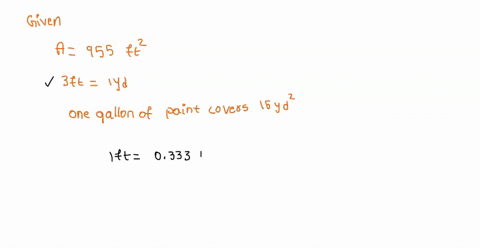 Given
A = 955 ft²
✓ 3ft = 1yd
one gallon of paint covers 15yd²
1ft = 0.333